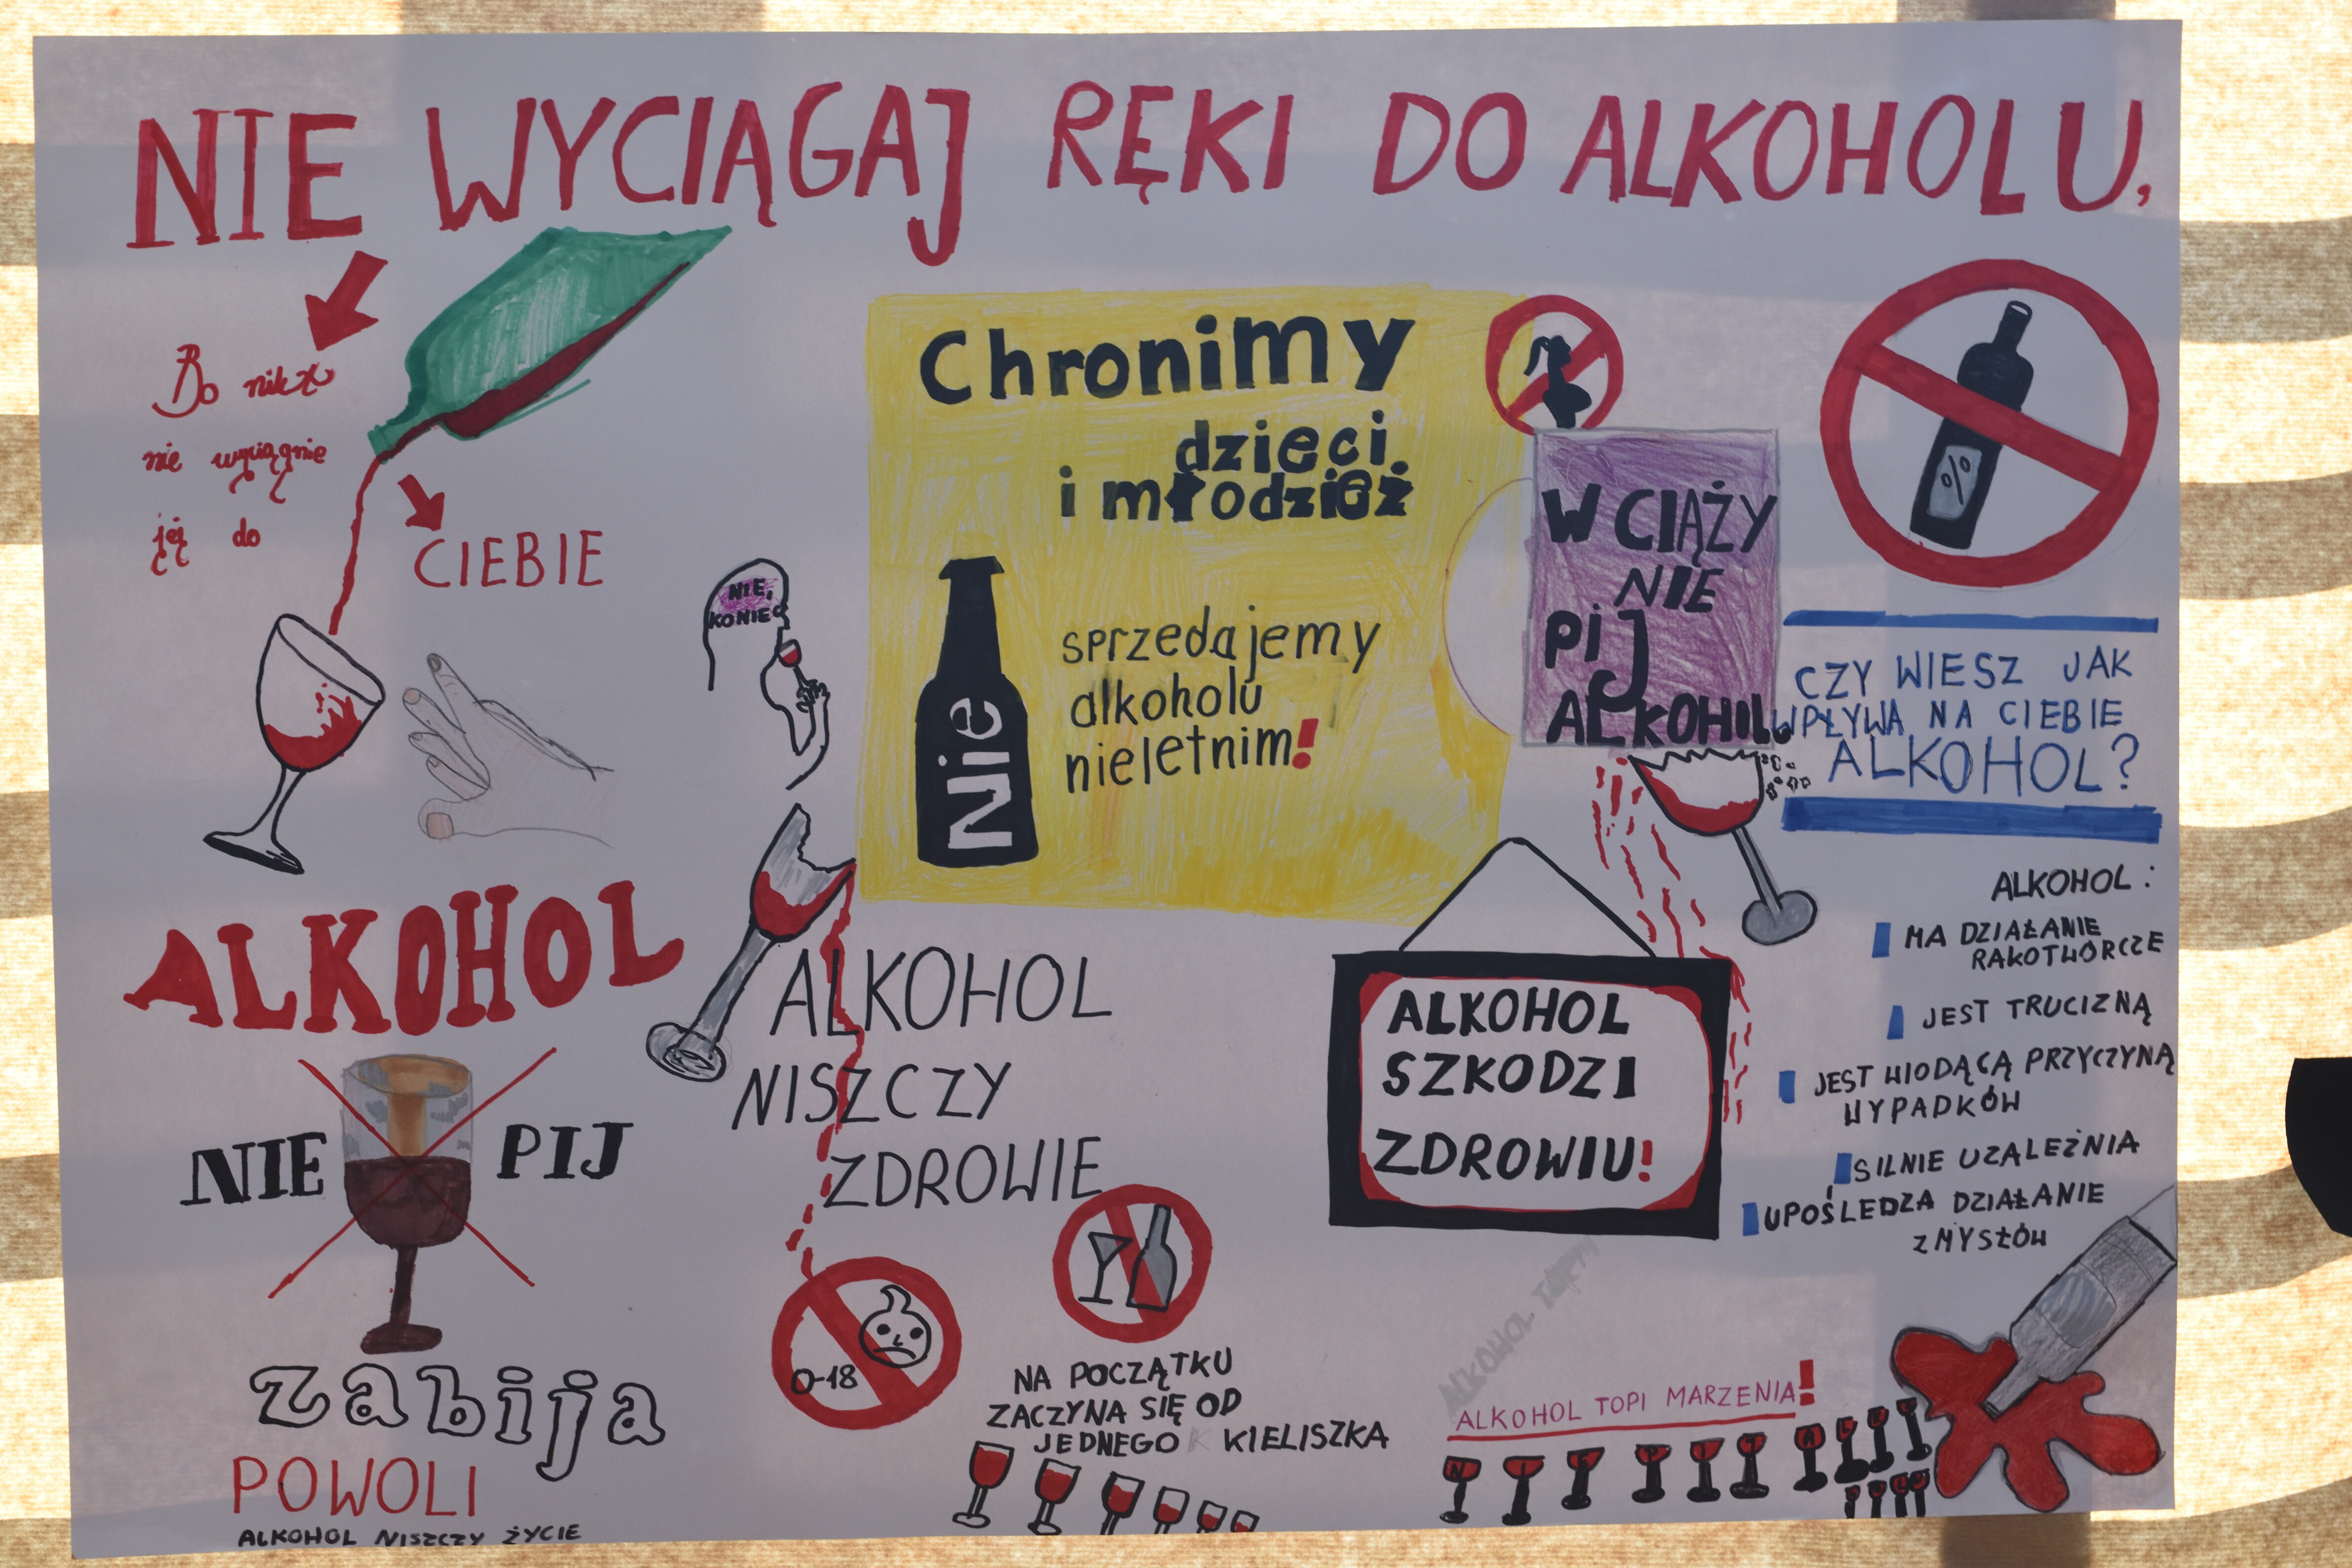 NIE WYCIĄGAJ RĘKI DO ALKOHOLU,
Bo nikt
nie wyciągnie
jej do
CIEBIE
NIE,
KONIEC
Chronimy
dzieci
i młodzież
Nie
sprzedajemy
alkoholu
nieletnim!
W CIĄŻY
NIE
PIJ
ALKOHOLU
%
CZY WIESZ JAK
WPŁYWA NA CIEBIE
ALKOHOL?
ALKOHOL:
MA DZIAŁANIE
RAKOTWÓRCZE
JEST TRUCIZNĄ
JEST WIODĄCĄ PRZYCZYNĄ
WYPADKÓW
SILNIE UZALEŻNIA
UPOŚLEDZA DZIAŁANIE
ZMYSŁÓW
ALKOHOL
NIE PIJ
zabija
POWOLI
ALKOHOL NISZCZY ŻYCIE
ALKOHOL
NISZCZY
ZDROWIE
0-18
NA POCZĄTKU
ZACZYNA SIĘ OD
JEDNEGO KIELISZKA
ALKOHOL
SZKODZI
ZDROWIU!
ALKOHOL
ALKOHOL TOPI MARZENIA!